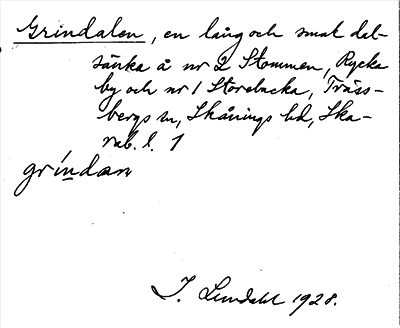 Grindalen, en lång och smal dal-
sänka å nr 2 Stommen, Rycka
by och nr 1 Storebacka, Träss-
bergs sn, Skånings hd, Ska-
rab. l. 1
gríndan
J. Lundahl 1928.